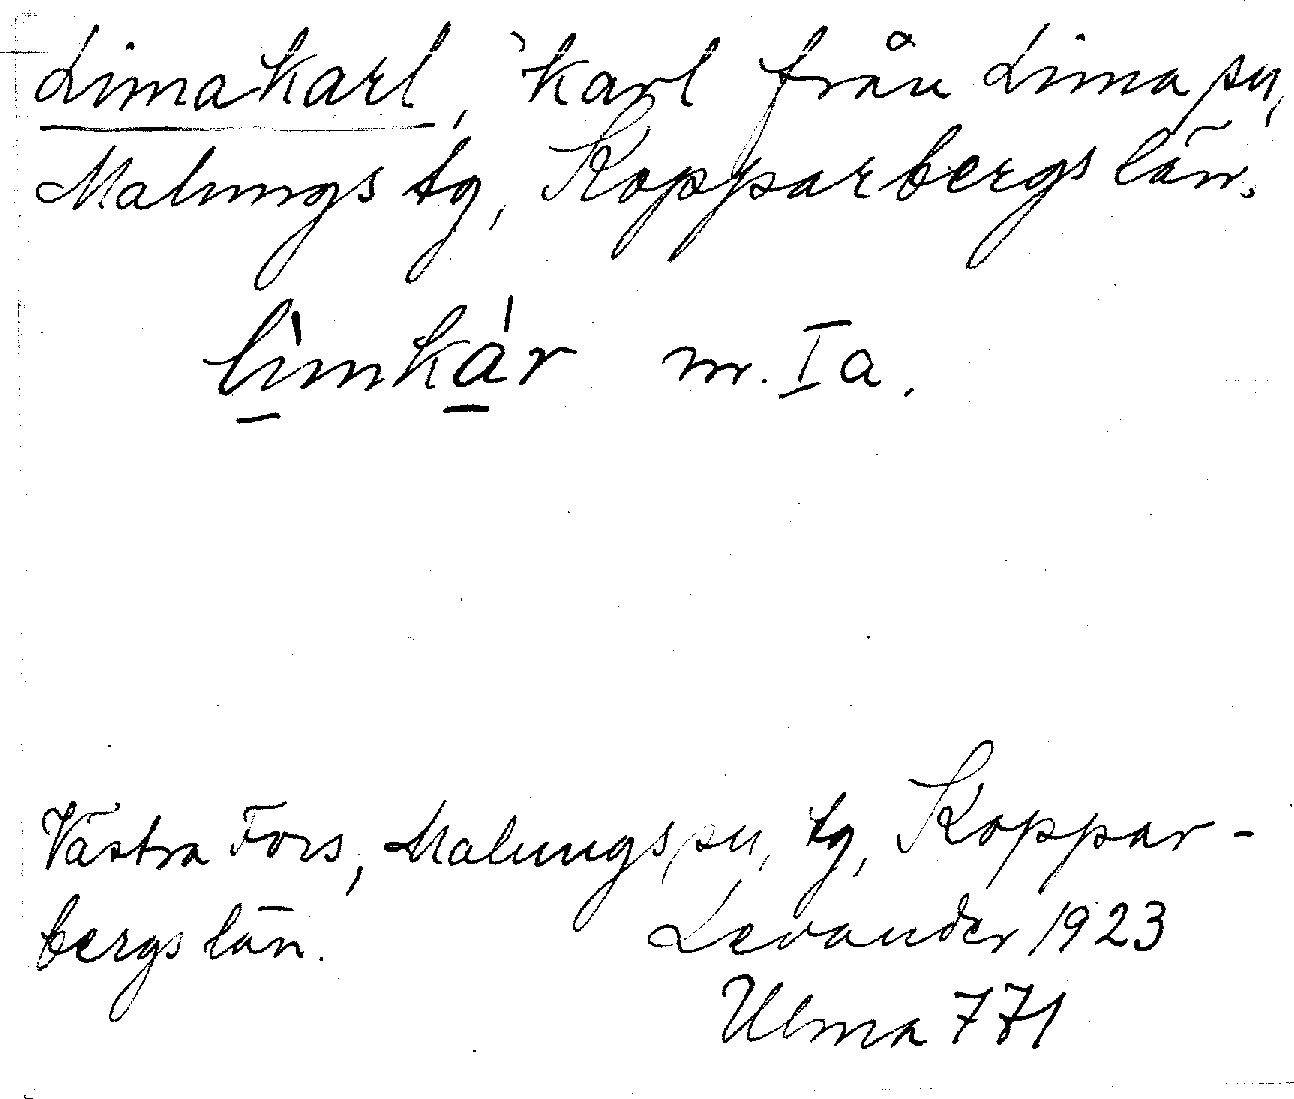 Limakarl, 'karl från Lima sn,
Malungs tg, Kopparbergs län.
lìmkár m. Ia.
Västra Fors, Malungs sn, tg, Koppar-
bergs län. Levander 1923
Ulma 771